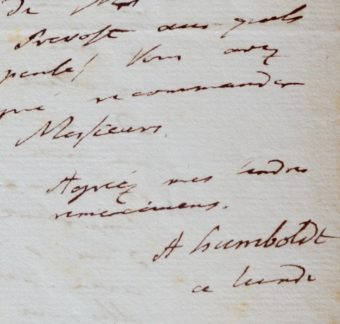 de M
Prevost aux quels
vous avez
recommander
Messieurs.
Agréez mes tendres
remerciemens.
A Humboldt
ce lundi